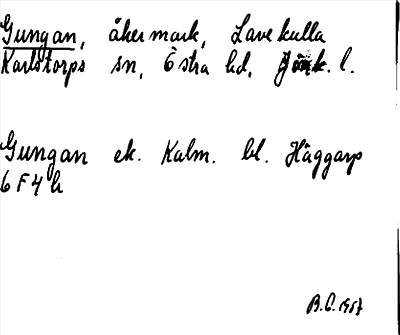 Gungan, åkermark, Lavekulla
Karlstorps sn, Östra hd, Jönk. l.
Gungan ek. Kalm. bl. Häggarp
6 F 4 h
B.C. 1957